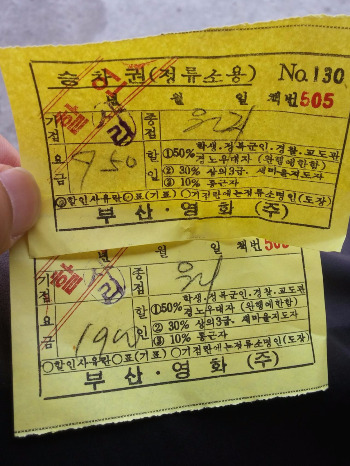 승차권(정류소용) No.130
년 월 일 책번505
기점 종점
요금 950 할인 ①50% 학생·정복군인·경찰·교도관
경노우대자 (완행에한함)
② 30% 상의3급. 새마을지도자
③ 10% 통근자
○할인사유란○표(기표) ○기점란에는정류소명인(도장)
부산·영화 (주)
일 책번
기점 종점
요금 할인 ①50% 학생·정복군인·경찰·교도관
경노우대자 (완행에한함)
② 30% 상의3급. 새마을지도자
③ 10% 통근자
○할인사유란○표(기표) ○기점란에는정류소명인(도장)
부산·영화 (주)